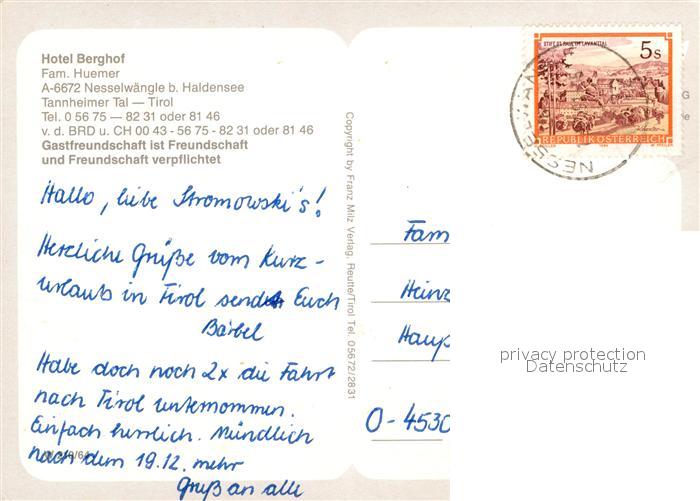 Hotel Berghof
Fam. Huemer
A-6672 Nesselwängle b. Haldensee
Tannheimer Tal — Tirol
Tel. 0 56 75 — 82 31 oder 81 46
v. d. BRD u. CH 00 43 - 56 75 - 82 31 oder 81 46
Gastfreundschaft ist Freundschaft
und Freundschaft verpflichtet
Hallo, liebe Stromowski's!
Herzliche Grüße vom Kurz-
urlaub in Tirol sendet Euch
Bärbel
Habe doch noch 2x die Fahrt
nach Tirol unternommen.
Einfach herrlich. Mündlich
nach dem 19.12. mehr
Gruß an alle
Copyright by Franz Milz Verlag, Reutte/Tirol Tel. 05672/2831
STIFT ST. PAUL IM LAVANTTAL
5 S
REPUBLIK ÖSTERREICH
Fam
Heinz
Haup
O-4530
privacy protection
Datenschutz